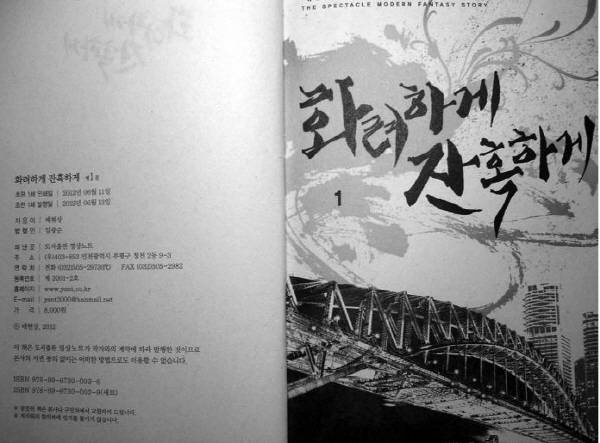 화려하게 잔혹하게 제1권
초판 1쇄 인쇄일 | 2012년 06월 11일
초판 1쇄 발행일 | 2012년 06월 13일
지 은 이 | 배현상
발 행 인 |
펴 낸 곳 | 도서출판 영상노트
주 소 | (우)403-853 인천광역시 부평구 청천 2동 9-3
연 락 처 | 전화 (032)305-2973(代) FAX (032)305-2982
등록번호 | 제 2001-2호
홈페이지 | www.ysnt.co.kr
E-mail | ysnt2000@hanmail.net
가 격 | 8,000원
ⓒ 배현상, 2012
이 책은 도서출판 영상노트가 작가와의 계약에 따라 발행한 것이므로
본사의 서면 동의 없이는 어떠한 방법으로도 이용할 수 없습니다.
ISBN 978-89-6730-002-6
ISBN 978-89-6730-003-9(세트)
* 잘못된 책은 본사나 구입처에서 교환하여 드립니다.
* 저자와의 협의하에 인지를 붙이지 않습니다.
THE SPECTACLE MODERN FANTASY STORY
화려하게
잔혹하게
1